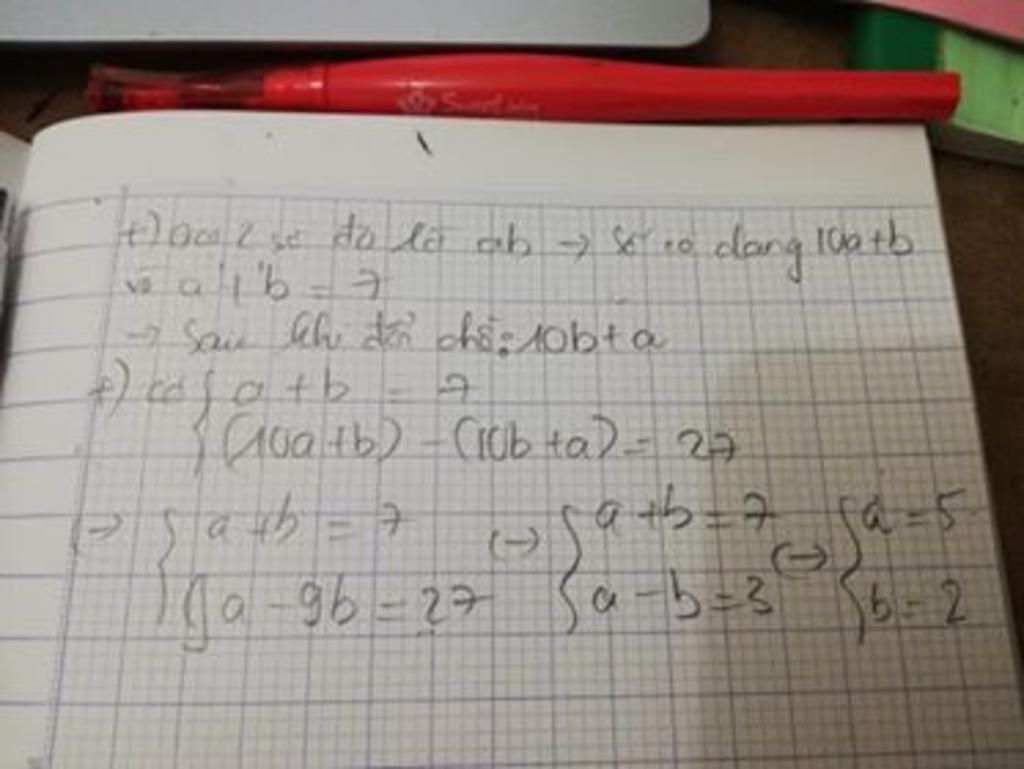 Sweet
+) Gọi 2 số đó là ab → số có dạng 10a+b
và a + b = 7
→ Sau khi đổi chỗ: 10b+a
+) có { a + b = 7
{ (10a+b) - (10b+a) = 27
(→) { a + b = 7 (→) { a + b = 7 (→) { a = 5
{ 9a - 9b = 27 { a - b = 3 { b = 2